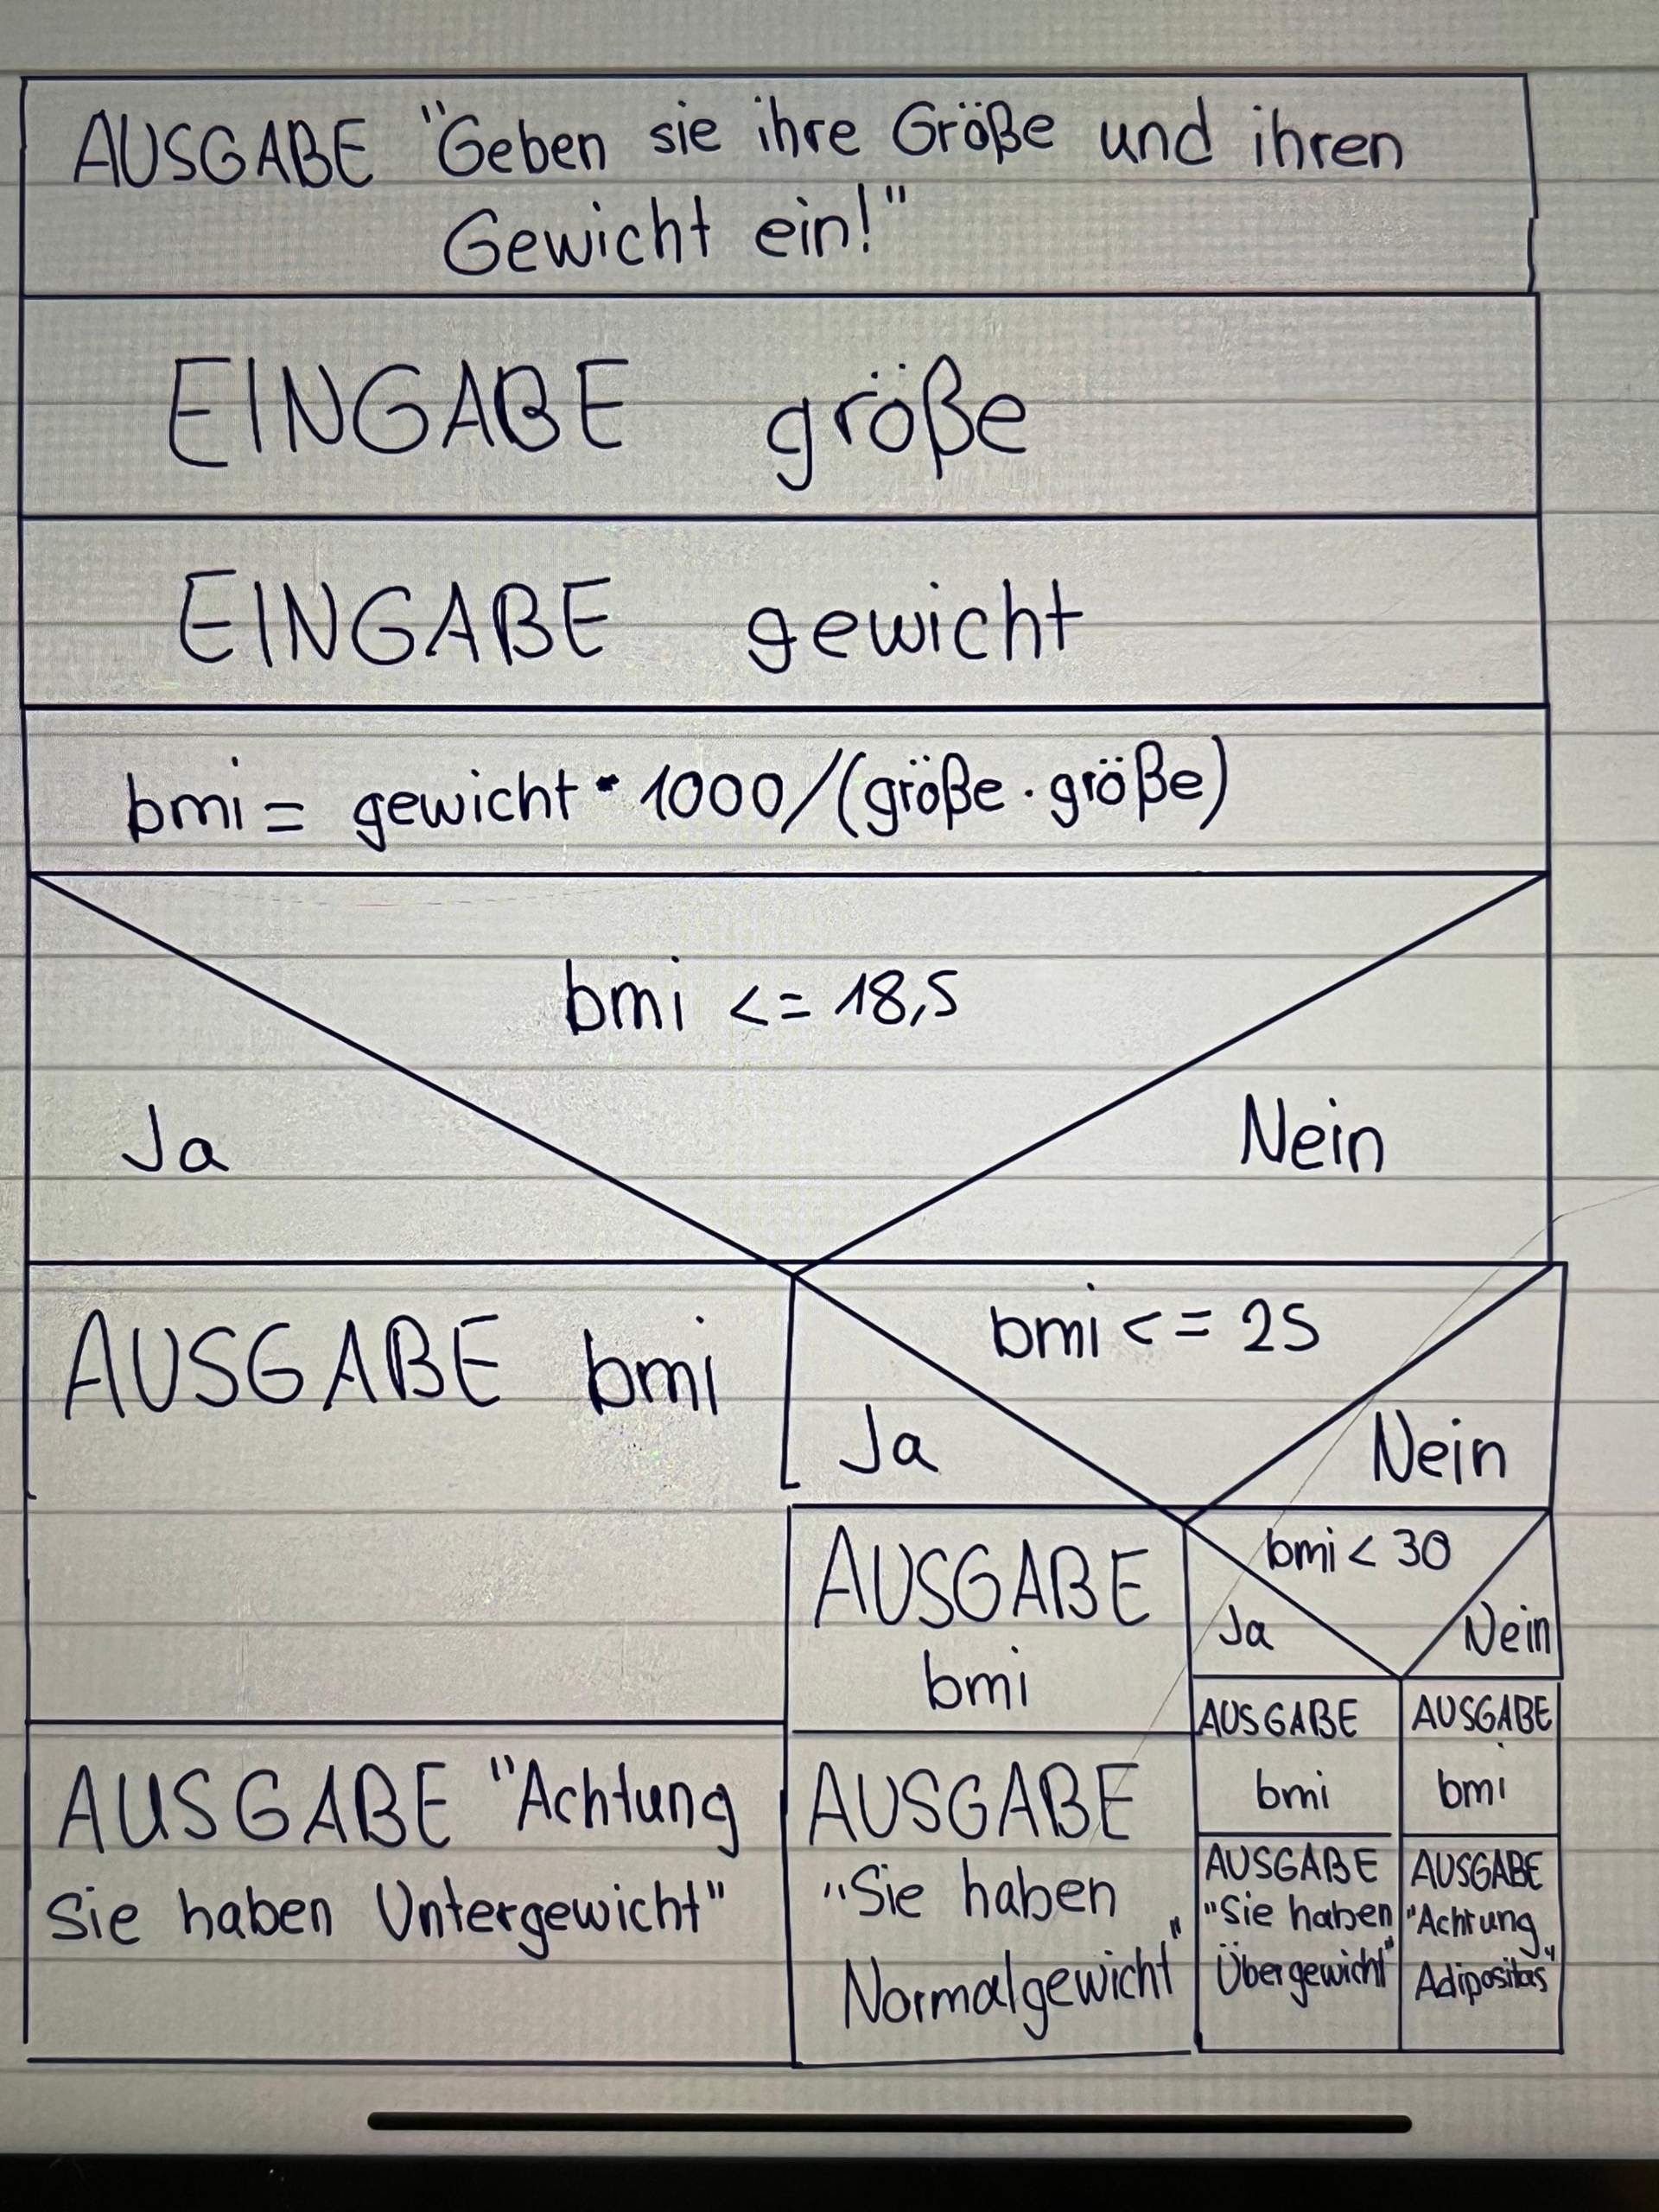 AUSGABE "Geben sie ihre Größe und ihren
Gewicht ein!"
EINGABE größe
EINGABE gewicht
bmi = gewicht * 1000/(größe · größe)
bmi <= 18,5
Ja
Nein
AUSGABE bmi
AUSGABE "Achtung
Sie haben Untergewicht"
bmi <= 25
Ja
Nein
AUSGABE
bmi
AUSGABE
"Sie haben
Normalgewicht"
bmi < 30
Ja
Nein
AUSGABE
bmi
AUSGABE
"Sie haben
Übergewicht"
AUSGABE
bmi
AUSGABE
"Achtung
Adipositas"